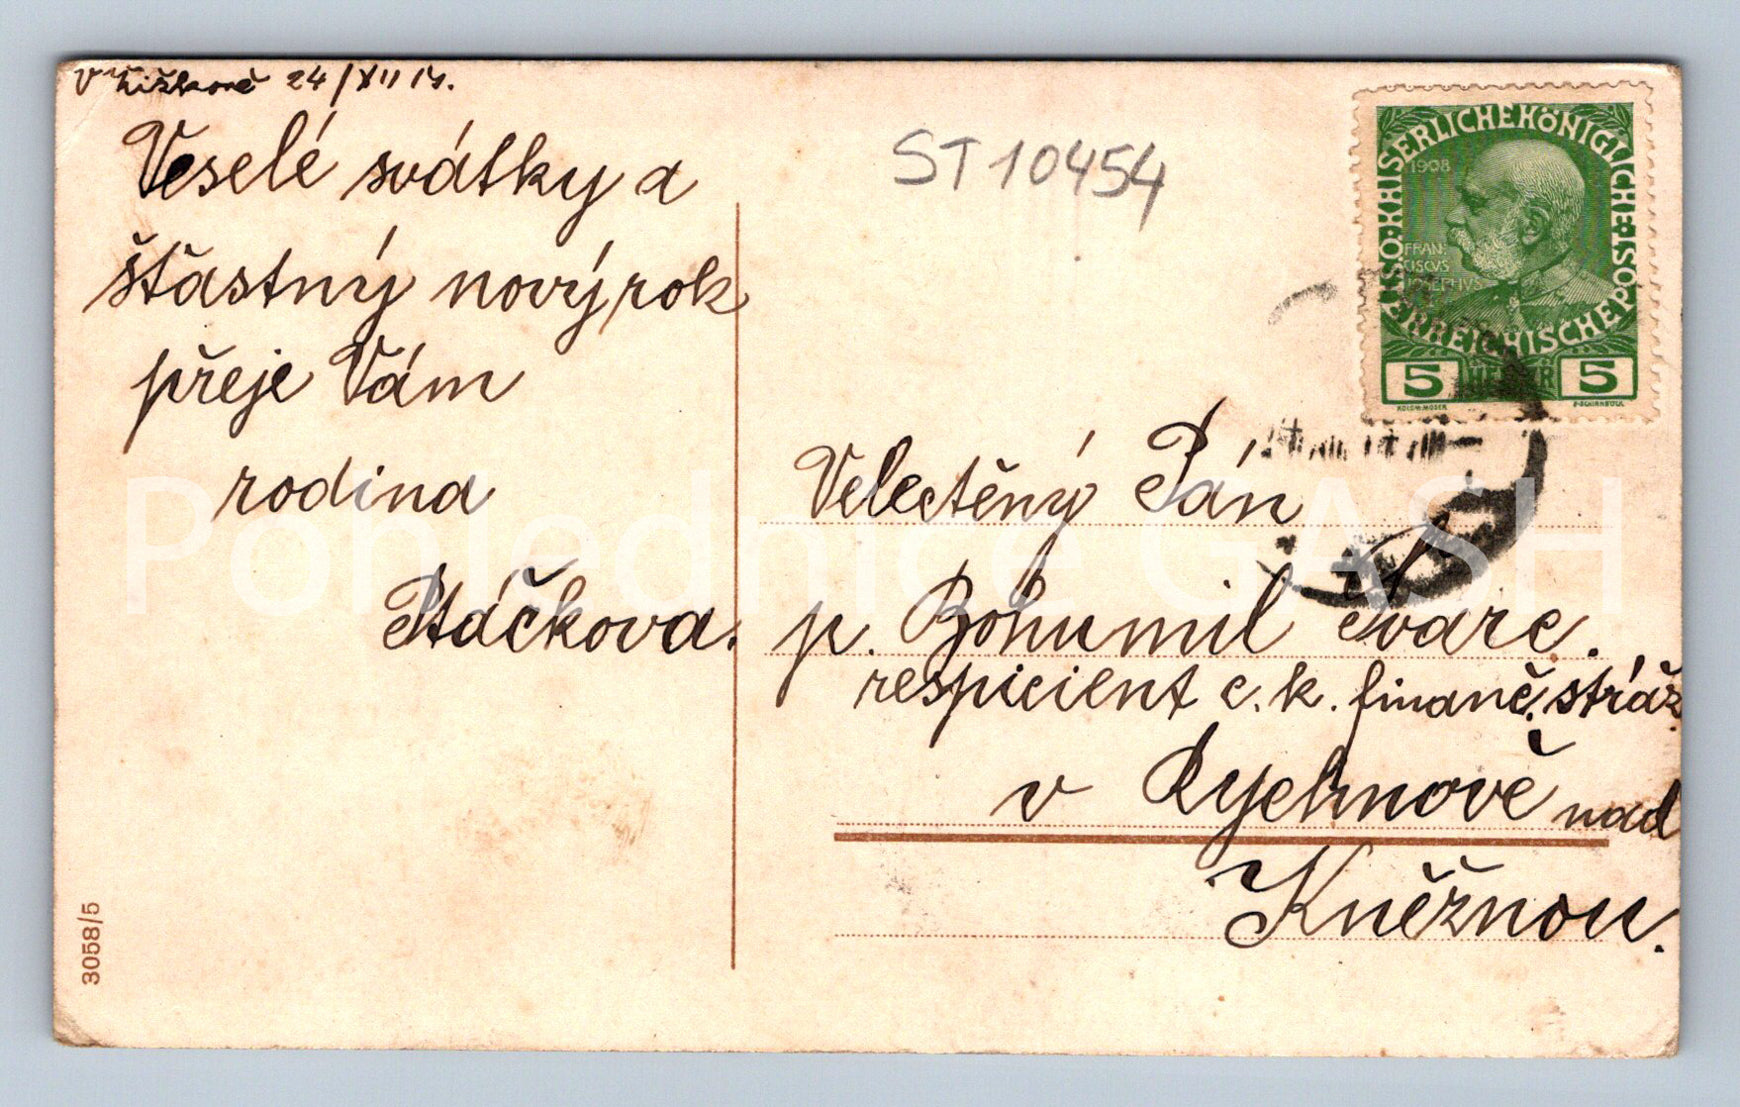 V Žižkově 24/XII 14.
Veselé svátky a
šťastný nový rok
přeje Vám
rodina
Ptáčkova.
ST10454
KAISERLICHE KÖNIGLICHE ÖSTERREICHISCHE POST
1908
FRAN-
CISCVS
JOSEPHVS
5 HELLER 5
KOLOM.MOSER
F.SCHIRNBÖCK
Velectěný Pán
p. Bohumil Švarc.
respicient c.k. finanč. stráž
v Rychnově nad
Kněžnou.
3058/5
Pohlednice GASH